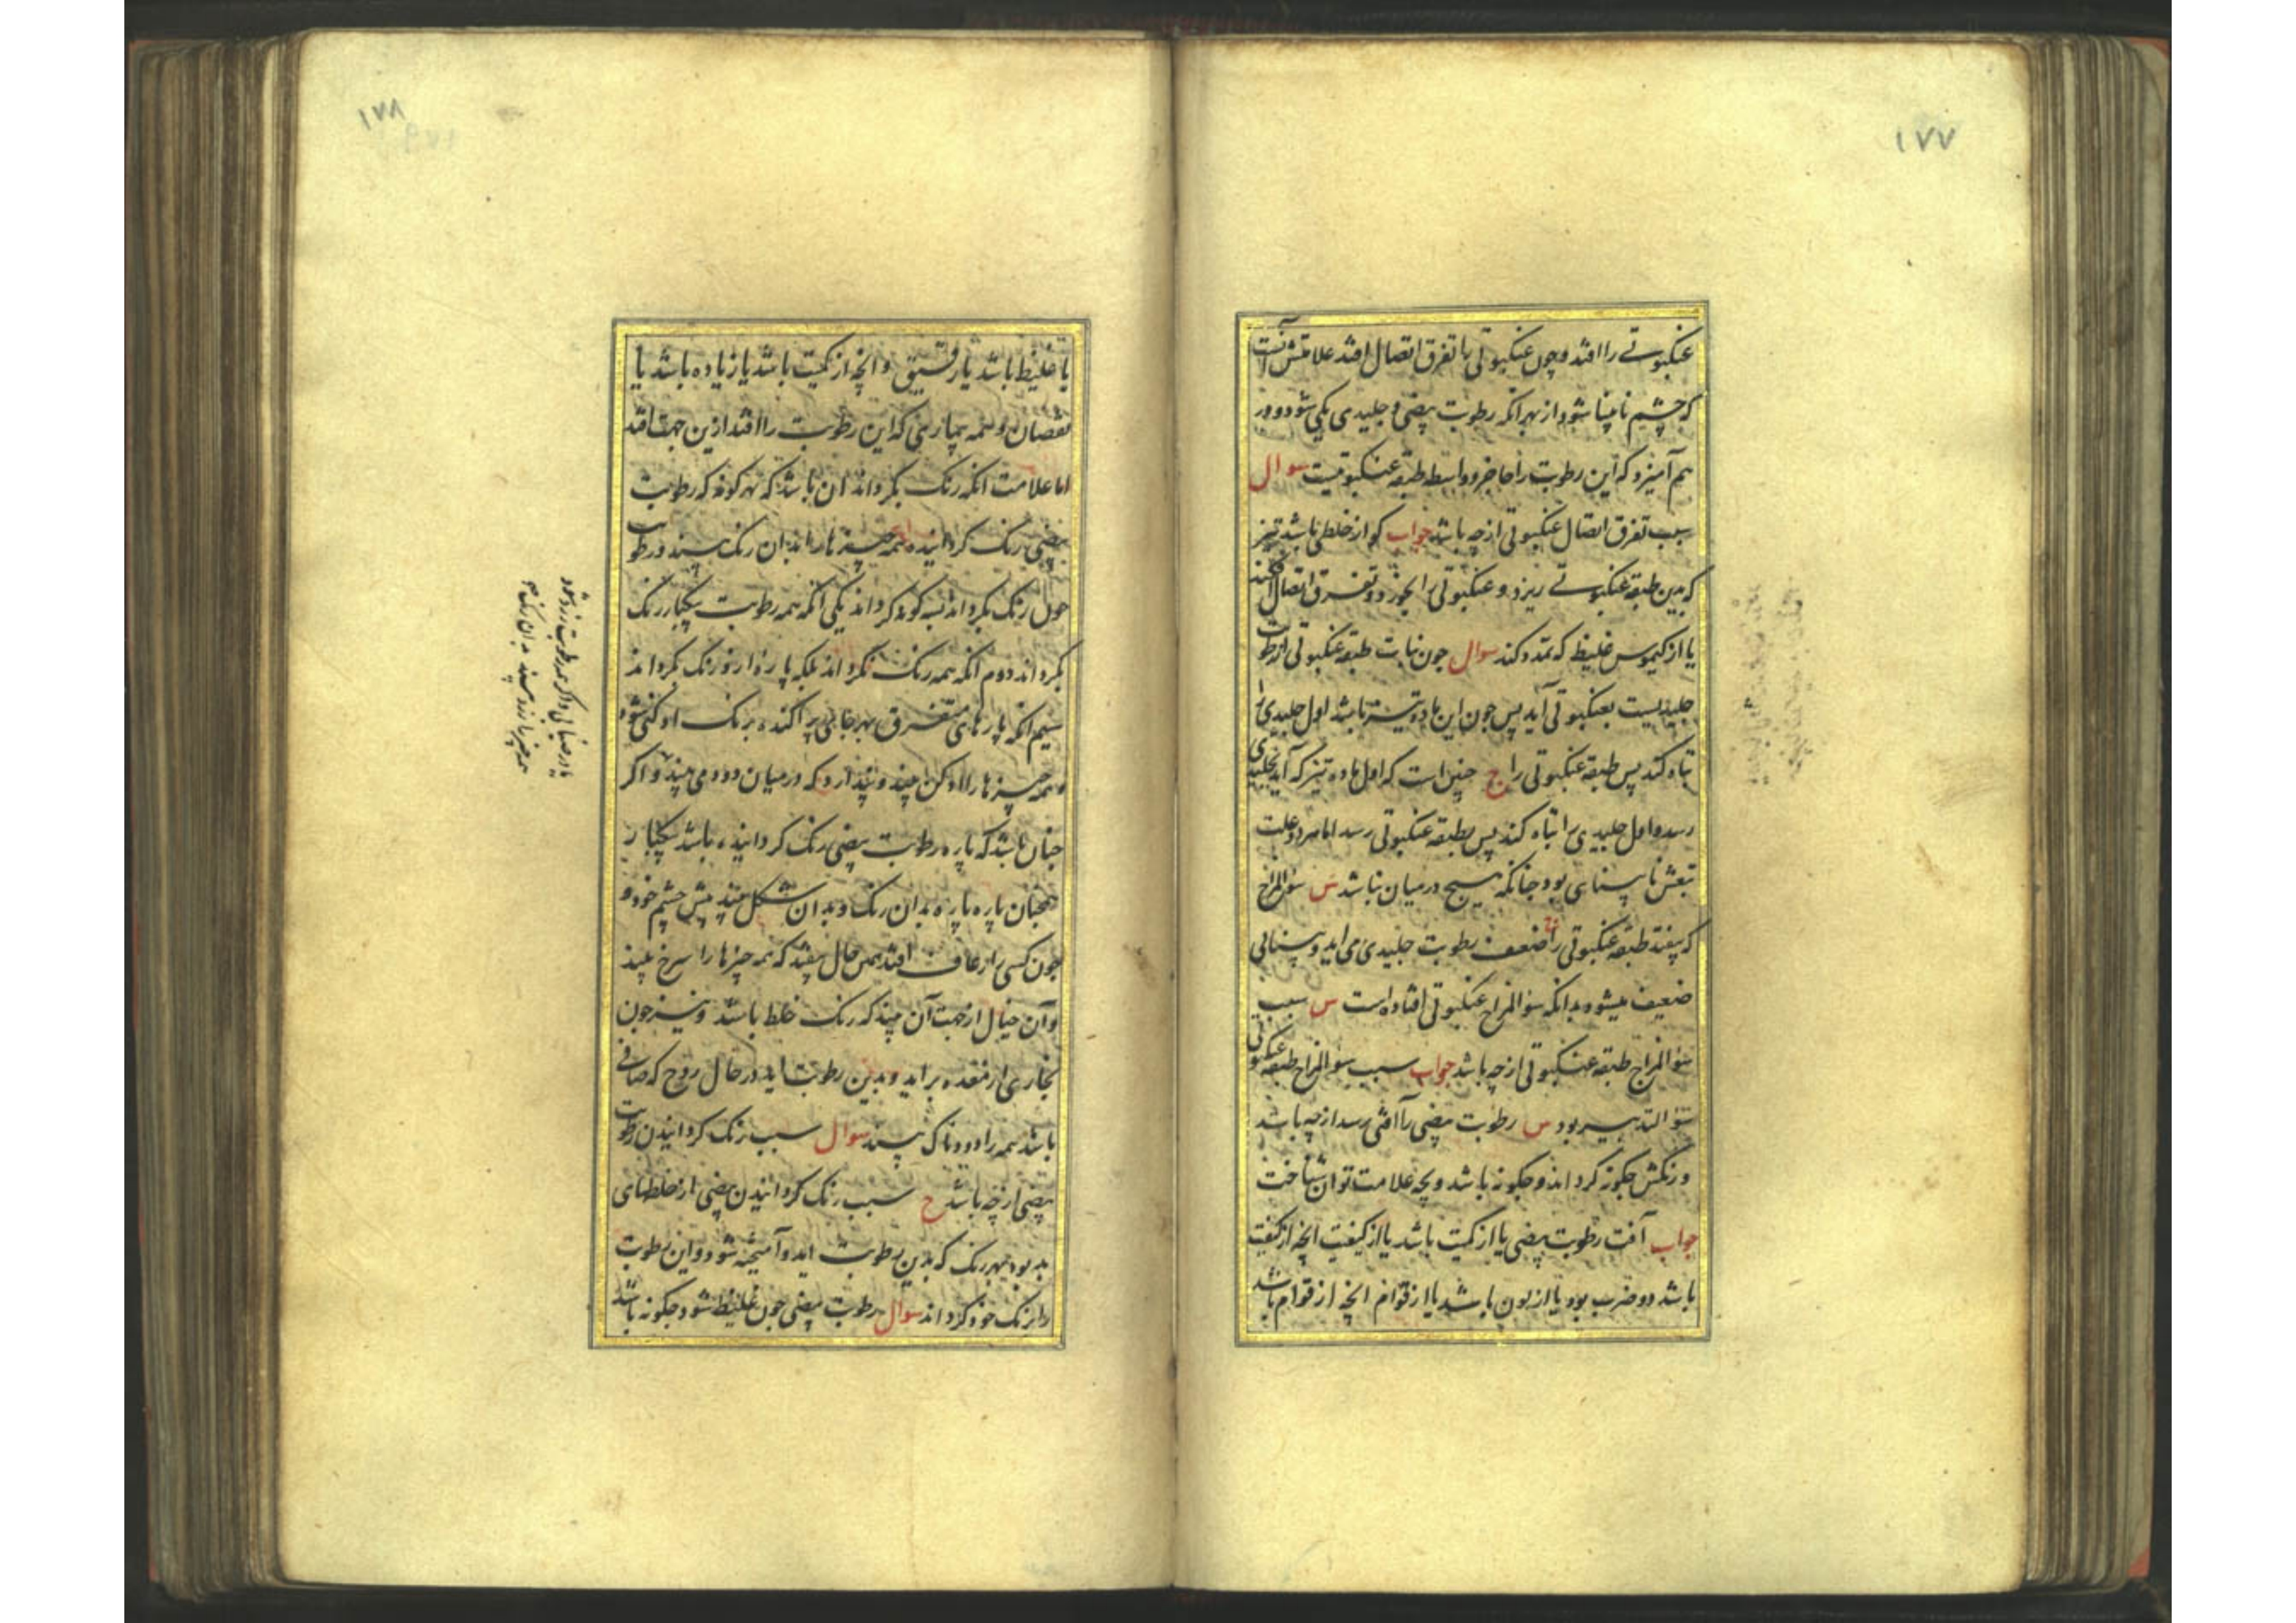 ۱۷۷
عنکبوتی را افتد و چون عنکبوتی را تفرق اتصال افتد علامتش آنست
که چشم نابینا شود از بهر انکه رطوبت بیضی و جلیدی یکی شود و در
هم آمیزد که این رطوبت را حاجز و واسطه طبقه عنکبوتیست سوال
سبب تفرق اتصال عنکبوتی از چه باشد جواب کو از خلطی باشد تیز
که بدین طبقه عنکبوتی ریزد و عنکبوتی را بخورد و تفرق اتصال کند
یا از کیموس غلیظ که تمدد کند سوال چون نبات طبقه عنکبوتی از رطوبت
جلیدیست بعنکبوتی آید پس چون این ماده تیز باشد اول جلیدی را
تباه کند پس طبقه عنکبوتی را ج چنین است که اول ماده تیز که آید بجلیدی
رسد و اول جلیدی را تباه کند پس بطبقه عنکبوتی رسد اما هر دو علت
تبعش نابینای بود چنانکه هیچ در میان نباشد س سؤ المزاج
که بیفتد طبقه عنکبوتی را ضعف رطوبت جلیدی می اید و بینایی
ضعیف میشود بدانکه سؤ المزاج عنکبوتی افتاده است س سبب
سؤ المزاج طبقه عنکبوتی از چه باشد جواب سبب سؤ المزاج طبقه عنکبوتی
سؤ التدبیر بود س رطوبت بیضی را آفتی رسد از چه باشد
و رنگش چکونه کرداند و چکونه باشد و بچه علامت توان شناخت
جواب آفت رطوبت بیضی یا از کمیت باشد یا از کیفیت انچه از کیفیت
باشد دو ضرب بود یا از لون باشد یا از قوام انچه از قوام باشد
۱۷۸
یا غلیظ باشد یا رقیق و انچه از کمیت باشد یا زیاده باشد یا
نقصان و همه بیماریی که این رطوبت را افتد ازین جهت افتد
اما علامت انکه رنک بکرداند ان باشد که هر کونه که رطوبت
بیضی رنک کردانیده همه چیزها را بدان رنک بیند و رطوبت
چون رنک بکرداند بسه کونه کرداند یکی انکه همه رطوبت یکبار رنک
بکرداند دوم انکه همه رنک نکرداند بلکه پاره از و رنک بکرداند
سیم انکه پارهای متفرق بهر جایی پراکنده برنک ادکنی شود
و همه چیزها را ادکن بیند و پندارد که در میان دود می بیند و اکر
چنان باشد که پاره رطوبت بیضی رنک کردانیده باشد یکبار
همچنان پاره پاره بدان رنک و بدان شکل بیند پیش چشم خود و
چون کسی را رعاف افتد همین حال بیفتد که همه چیزها را سرخ بیند
و آن خیال از جهت آن بیند که رنک خلط باشد و نیز چون
بخاری از معده براید و بدین رطوبت اید در حال روح که صافی
باشد همه را دودناک بیند سوال سبب رنک کردانیدن رطوبت
بیضی از چه باشد ج سبب رنک کردانیدن بیضی از خلطهای
بد بود بهر رنک که بدین رطوبت اید و آمیخته شود و این رطوبت
را برنک خود کرداند سوال رطوبت بیضی چون غلیظ شود چکونه باشد